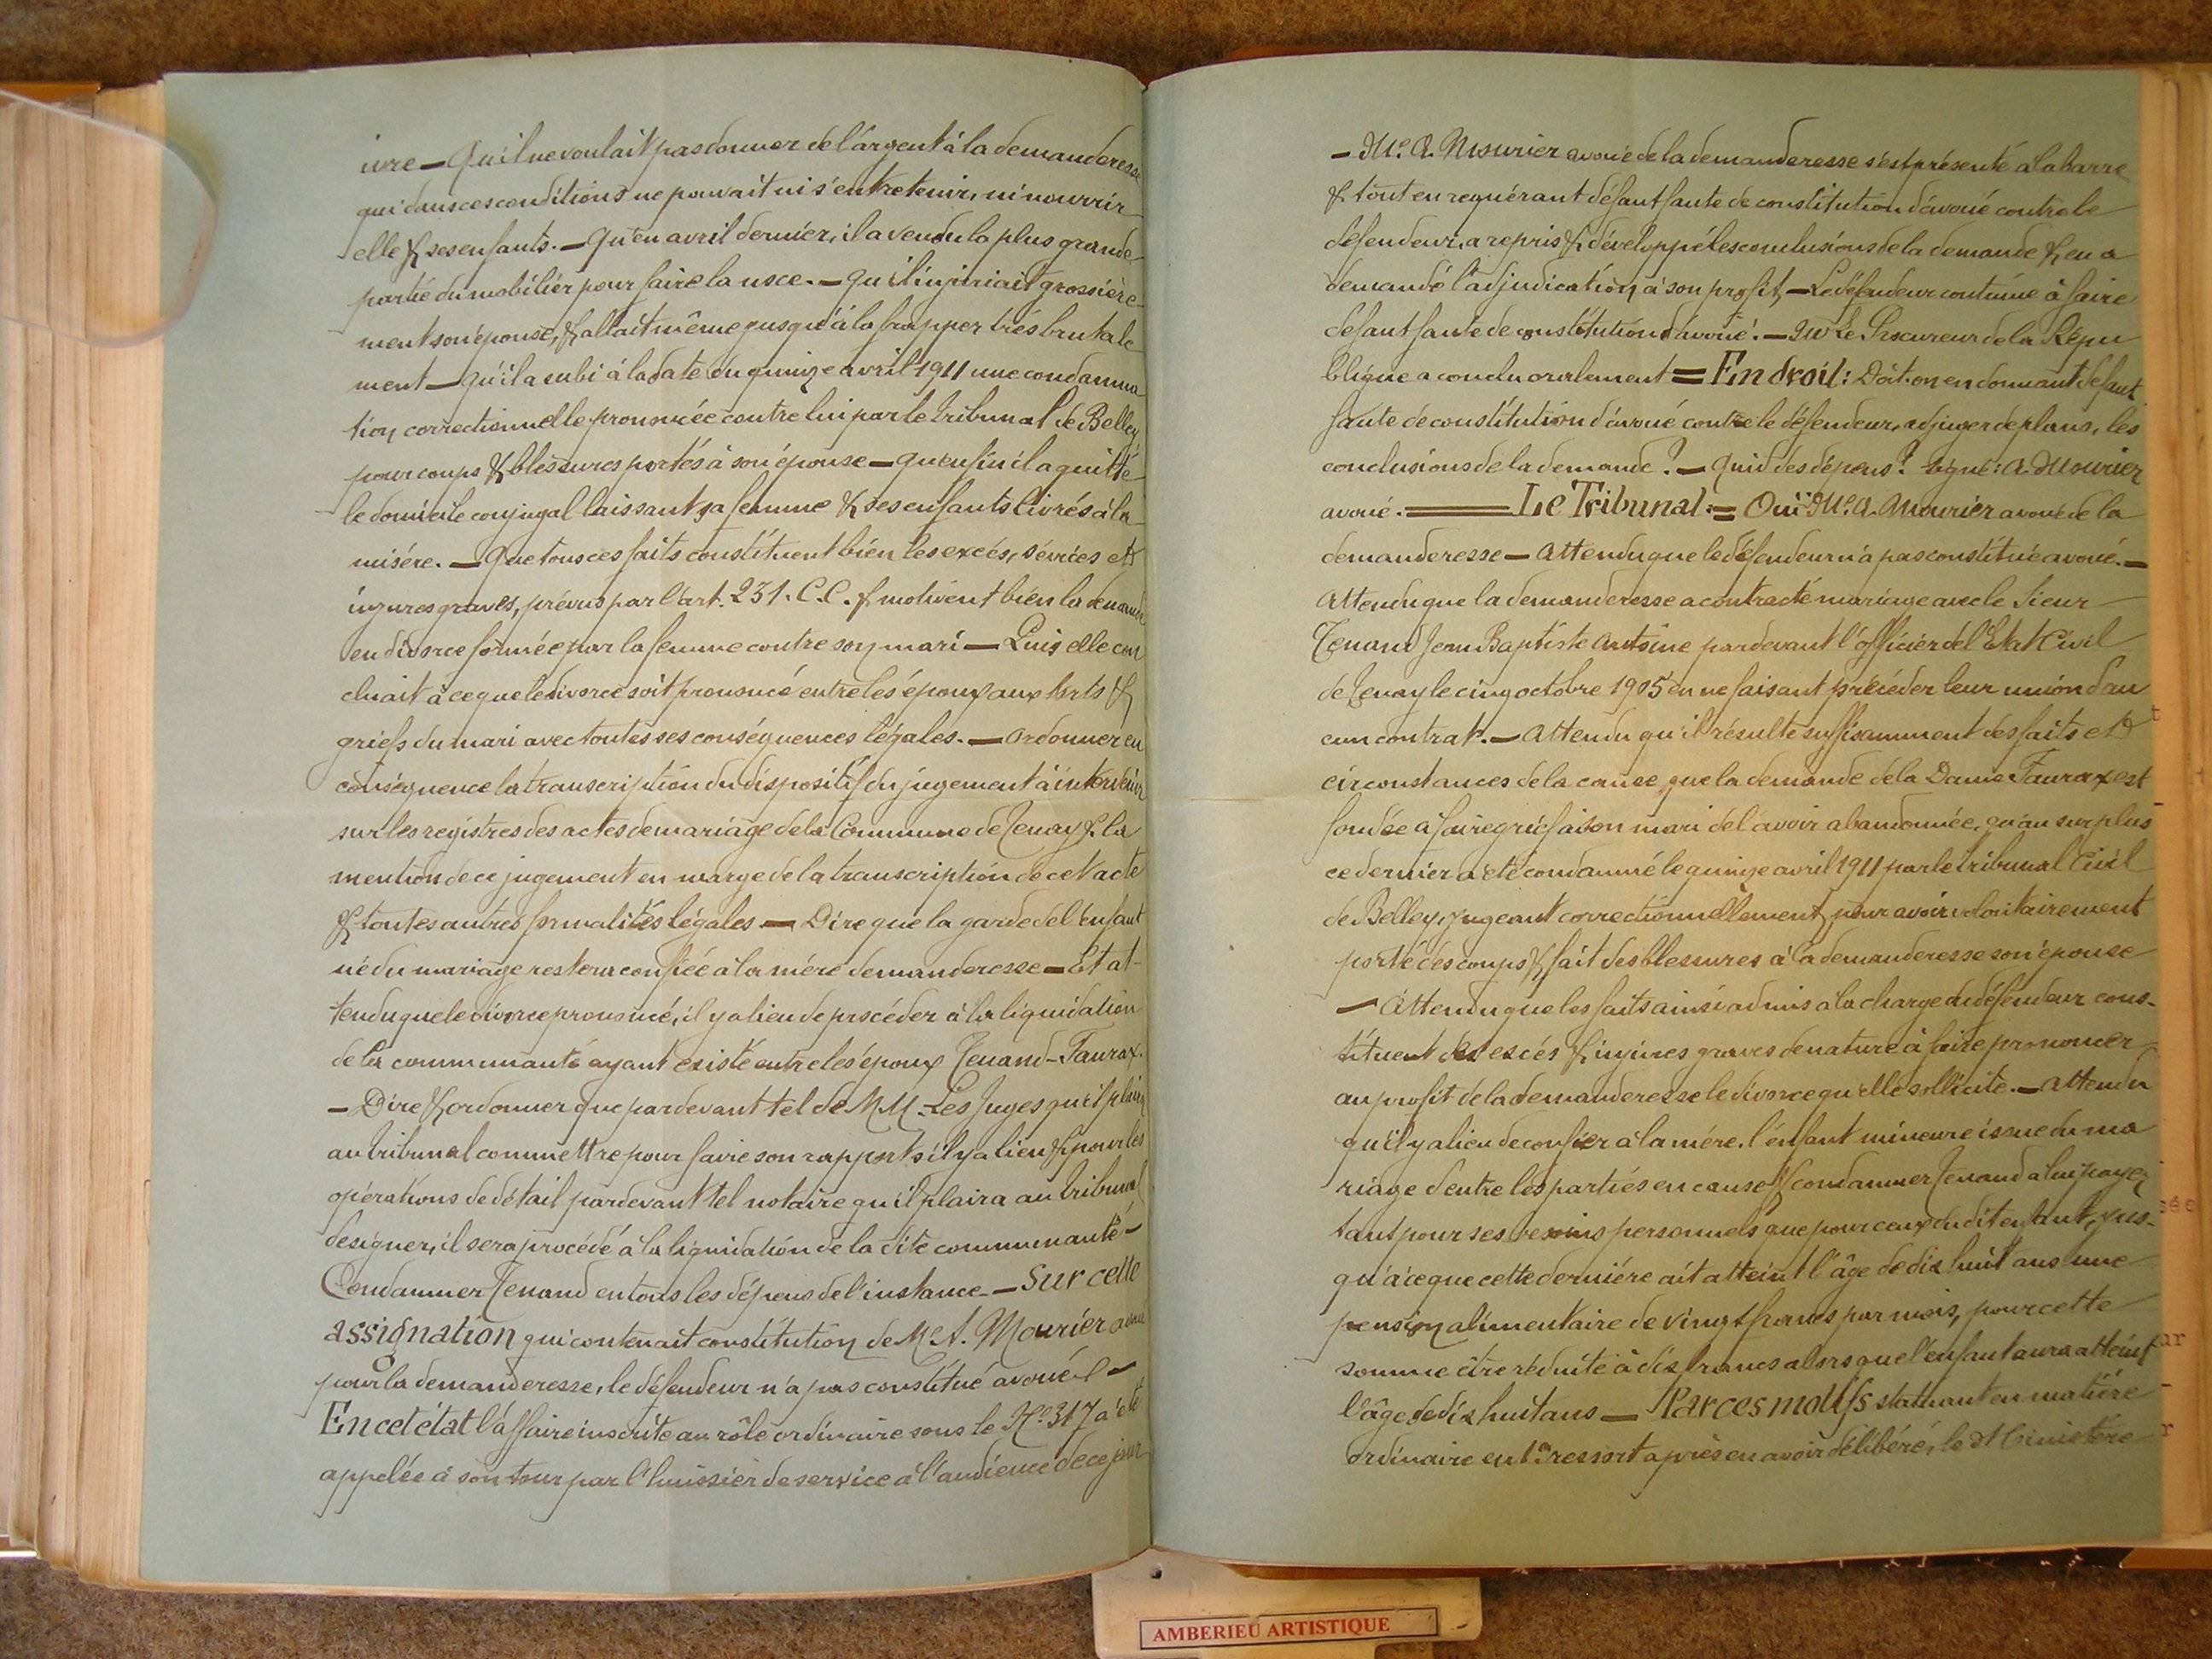 ivre — Qu'il ne voulait pas donner de l'argent à la demanderesse
qui dans ces conditions ne pouvait ni s'entretenir, ni nourrir
elle & ses enfants. — Qu'en avril dernier, il a vendu la plus grande
partie du mobilier pour faire la noce. — qu'il injuriait grossière-
ment son épouse, & allait même jusqu'à la frapper très brutale
ment — qu'il a subi à la date du quinze avril 1911 une condamna
tion correctionnelle prononcée contre lui par le tribunal de Belley
pour coups & blessures portés à son épouse — qu'enfin il a quitté
le domicile conjugal laissant sa femme & ses enfants livrés à la
misère. — Que tous ces faits constituent bien les excès, sévices et
injures graves, prévus par l'art. 231. C.C. & motivent bien la demande
en divorce formée par la femme contre son mari — Puis elle con
cluait à ce que le divorce soit prononcé entre les époux aux torts &
griefs du mari avec toutes ses conséquences légales. — Ordonner en
conséquence la transcription du dispositif du jugement à intervenir
sur les registres des actes de mariage de la Commune de Tenay & la
mention de ce jugement en marge de la transcription de cet acte
& toutes autres formalités légales — Dire que la garde de l'enfant
né du mariage restera confiée à la mère demanderesse — Et at-
tendu que le divorce prononcé, il y a lieu de procéder à la liquidation
de la communauté ayant existé entre les époux Tenand-Faurax.
— Dire & ordonner que pardevant tel de M.M. Les Juges qu'il plaira
au tribunal commettre pour faire son rapport s'il y a lieu & pour les
opérations de détail pardevant tel notaire qu'il plaira au tribunal
désigner, il sera procédé à la liquidation de la dite communauté —
Condamner Tenand en tous les dépens de l'instance — Sur cette
assignation qui contenait constitution de Me A. Mourier avoué
pour la demanderesse, le défendeur n'a pas constitué avoué —
En cet état l'affaire inscrite au rôle ordinaire sous le No 317 a été
appelée à son tour par l'huissier de service à l'audience de ce jour
— Me. A. Mourier avoué de la demanderesse s'est présenté à la barre
& tout en requérant défaut faute de constitution d'avoué contre le
défendeur, a repris & développé les conclusions de la demande & en a
demandé l'adjudication à son profit — Le défendeur continue à faire
défaut faute de constitution d'avoué. — Mr Le Procureur de la Répu
blique a conclu oralement = En droit: Doit-on en donnant défaut
faute de constitution d'avoué contre le défendeur, adjuger de plano, les
conclusions de la demande? — Quid des dépens? Signé: A. Mourier
avoué. — Le Tribunal: = Ouï Me. A. Mourier avoué de la
demanderesse — Attendu que le défendeur n'a pas constitué avoué. —
Attendu que la demanderesse a contracté mariage avec le Sieur
Tenand Jean Baptiste Antoine pardevant l'officier de l'Etat Civil
de Tenay le cinq octobre 1905 en ne faisant précéder leur union d'au
cun contrat. — Attendu qu'il résulte suffisamment des faits et
circonstances de la cause que la demande de la Dame Faurax est
fondée à faire grief à son mari de l'avoir abandonnée, qu'au surplus
ce dernier a été condamné le quinze avril 1911 par le tribunal Civil
de Belley, jugeant correctionnellement pour avoir volontairement
porté des coups & fait des blessures à la demanderesse son épouse
— Attendu que les faits ainsi admis à la charge du défendeur cons-
tituent des excès & injures graves de nature à faire prononcer
au profit de la demanderesse le divorce qu'elle sollicite. — Attendu
qu'il y a lieu de confier à la mère, l'enfant mineure issue du ma
riage d'entre les parties en cause & condamner Tenand à lui payer
tant pour ses besoins personnels que pour ceux dudit enfant, jus-
qu'à ce que cette dernière ait atteint l'âge de dix huit ans une
pension alimentaire de vingt francs par mois, pour cette
somme être réduite à dix francs alors que l'enfant aura atteint
l'âge de dix huit ans — Par ces motifs statuant en matière
ordinaire en 1er ressort après en avoir délibéré, le Ministère
AMBERIEU ARTISTIQUE